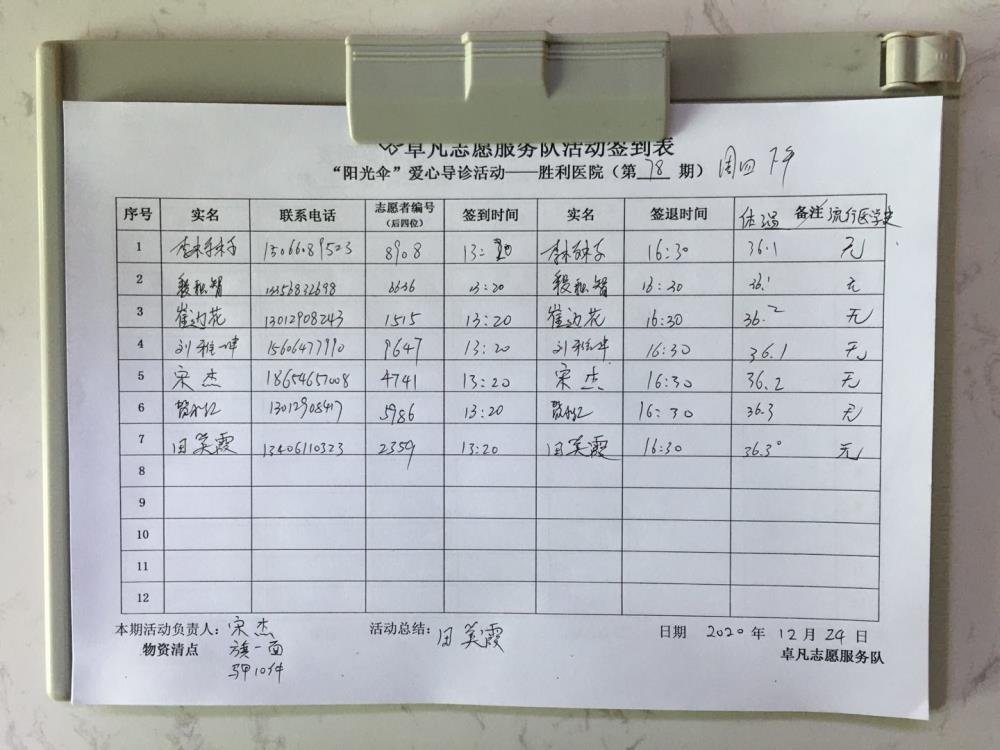 卓凡志愿服务队活动签到表
“阳光伞”爱心导诊活动——胜利医院（第 78 期） 周四 下午
序号 实名 联系电话 志愿者编号（后四位） 签到时间 实名 签退时间 体温 备注 流行医学史
1 15066089523 8908 13:20 16:30 36.1 无
2 13356832698 6636 13:20 16:30 36.1 无
3 崔边花 13012908243 1515 13:20 崔边花 16:30 36.2 无
4 15606477990 9647 13:20 16:30 36.1 无
5 宋杰 18654657008 4741 13:20 宋杰 16:30 36.2 无
6 13012908417 5986 13:20 16:30 36.3 无
7 田英霞 13406110323 2359 13:20 田英霞 16:30 36.3° 无
8
9
10
11
12
本期活动负责人：宋杰 活动总结：田英霞 日期 2020 年 12 月 24 日
物资清点 旗一面 卓凡志愿服务队
马甲10件